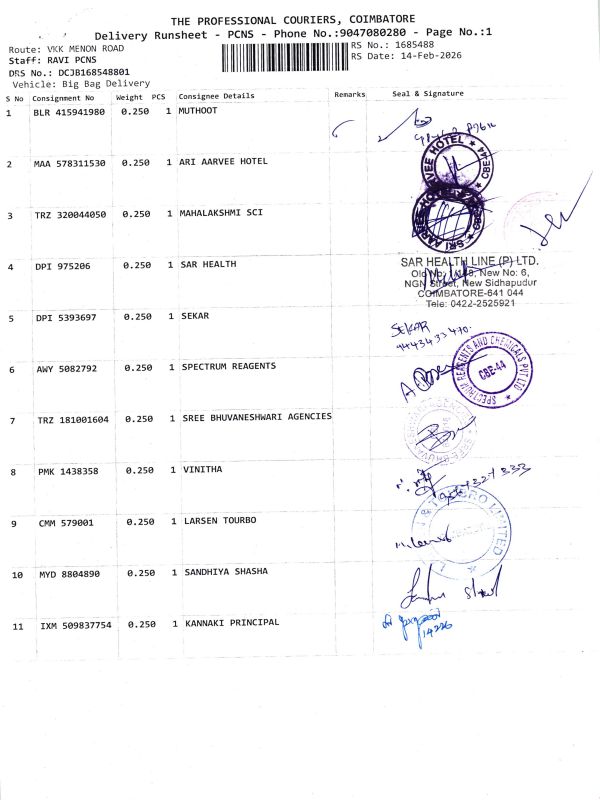 THE PROFESSIONAL COURIERS, COIMBATORE
Delivery Runsheet - PCNS - Phone No.:9047080280 - Page No.:1
Route: VKK MENON ROAD
RS No.: 1685488
Staff: RAVI PCNS
RS Date: 14-Feb-2026
DRS No.: DCJB168548801
Vehicle: Big Bag Delivery
S No Consignment No Weight PCS Consignee Details Remarks Seal & Signature
1 BLR 415941980 0.250 1 MUTHOOT
2 MAA 578311530 0.250 1 ARI AARVEE HOTEL
3 TRZ 320044050 0.250 1 MAHALAKSHMI SCI
4 DPI 975206 0.250 1 SAR HEALTH
SAR HEALTH LINE (P) LTD.
New No: 6,
NGN Street, New Sidhapudur
COIMBATORE-641 044
Tele: 0422-2525921
5 DPI 5393697 0.250 1 SEKAR
SEKAR
6 AWY 5082792 0.250 1 SPECTRUM REAGENTS
SPECTRUM REAGENTS AND CHEMICALS PVT LTD
CBE-44
7 TRZ 181001604 0.250 1 SREE BHUVANESHWARI AGENCIES
8 PMK 1438358 0.250 1 VINITHA
9 CMM 579001 0.250 1 LARSEN TOURBO
10 MYD 8804890 0.250 1 SANDHIYA SHASHA
11 IXM 509837754 0.250 1 KANNAKI PRINCIPAL